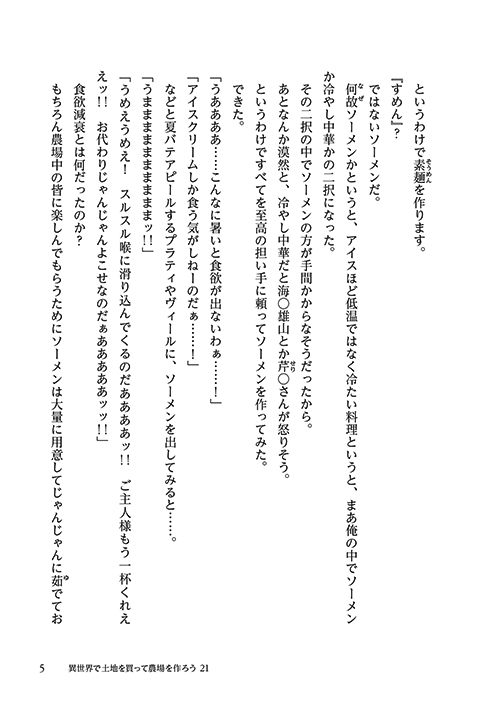 というわけで素麺を作ります。
『すめん』？
ではないソーメンだ。
何故ソーメンかというと、アイスほど低温ではなく冷たい料理というと、まあ俺の中でソーメン
か冷やし中華かの二択になった。
その二択の中でソーメンの方が手間かからなそうだったから。
あとなんか漠然と、冷やし中華だと海〇雄山とか芹〇さんが怒りそう。
というわけですべてを至高の担い手に頼ってソーメンを作ってみた。
できた。
「うああああ……こんなに暑いと食欲が出ないわぁ……！」
「アイスクリームしか食う気がしねーのだぁ……！」
などと夏バテアピールするプラティやヴィールに、ソーメンを出してみると……。
「うまままままままままッ！！」
「うめえうめえ！　スルスル喉に滑り込んでくるのだああああッ！！　ご主人様もう一杯くれえ
えッ！！　お代わりじゃんじゃんよこせなのだぁあああああッッ！！」
食欲減衰とは何だったのか？
もちろん農場中の皆に楽しんでもらうためにソーメンは大量に用意してじゃんじゃんに茹でてお
5　異世界で土地を買って農場を作ろう 21